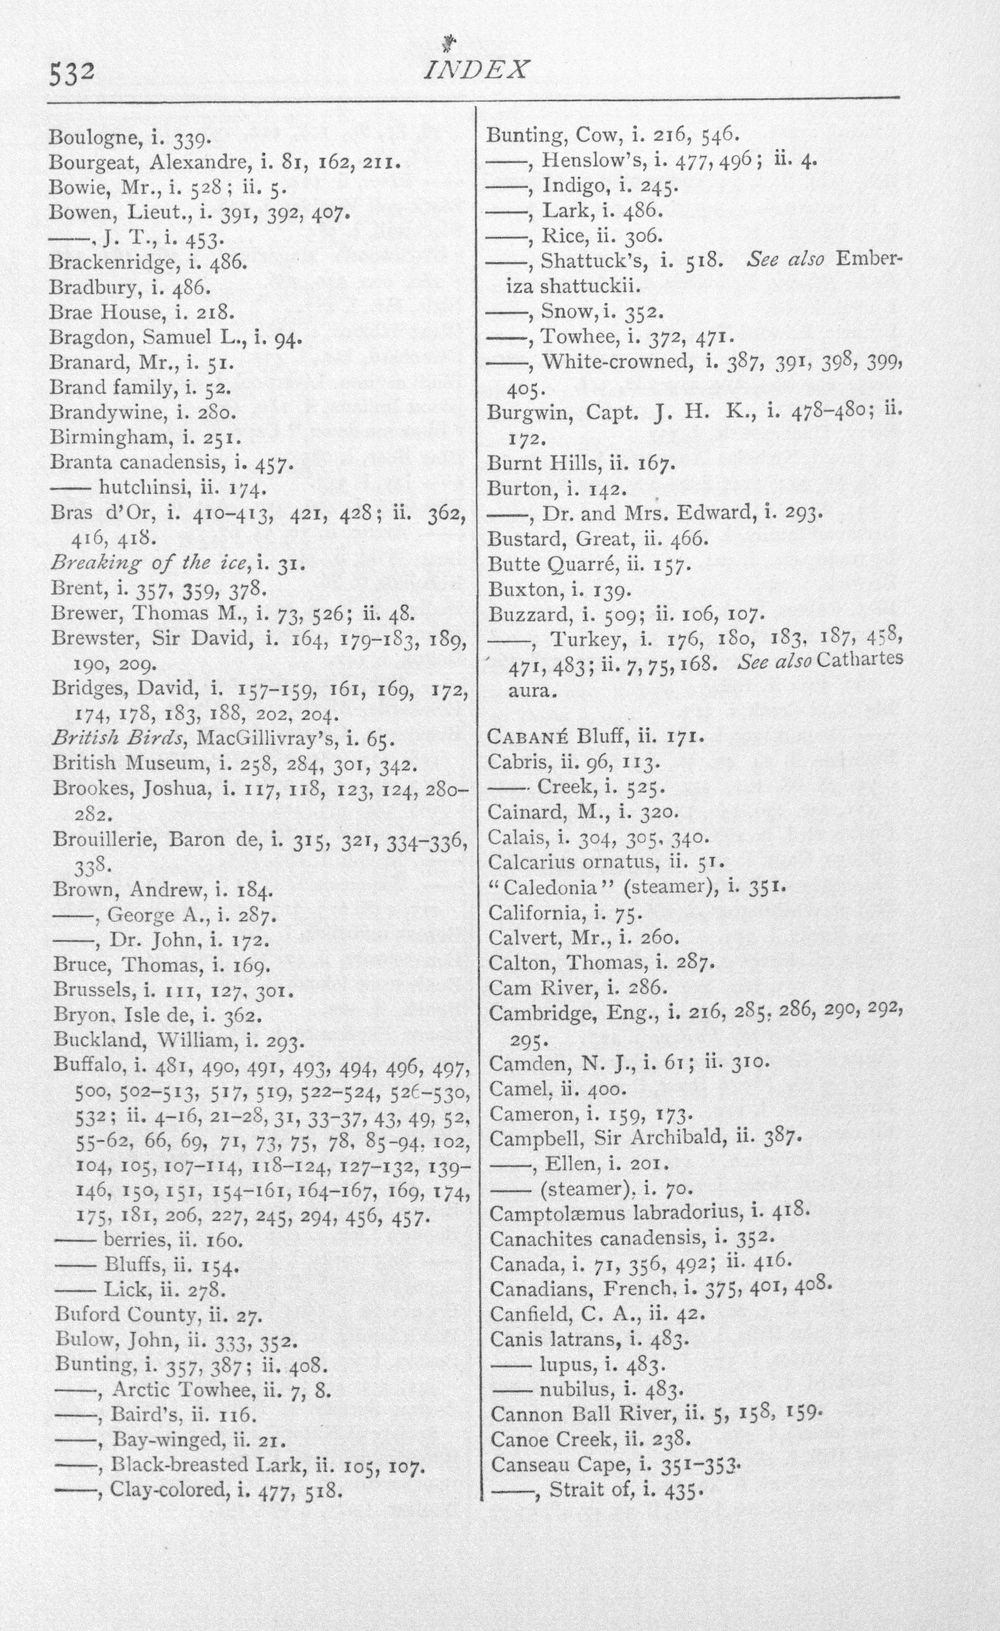 532
INDEX
Boulogne, i. 339.
Bourgeat, Alexandre, i. 81, 162, 211.
Bowie, Mr., i. 528; ii. 5.
Bowen, Lieut., i. 391, 392, 407.
——, J. T., i. 453.
Brackenridge, i. 486.
Bradbury, i. 486.
Brae House, i. 218.
Bragdon, Samuel L., i. 94.
Branard, Mr., i. 51.
Brand family, i. 52.
Brandywine, i. 280.
Birmingham, i. 251.
Branta canadensis, i. 457.
—— hutchinsi, ii. 174.
Bras d'Or, i. 410–413, 421, 428; ii. 362,
416, 418.
Breaking of the ice, i. 31.
Brent, i. 357, 359, 378.
Brewer, Thomas M., i. 73, 526; ii. 48.
Brewster, Sir David, i. 164, 179–183, 189,
190, 209.
Bridges, David, i. 157–159, 161, 169, 172,
174, 178, 183, 188, 202, 204.
British Birds, MacGillivray's, i. 65.
British Museum, i. 258, 284, 301, 342.
Brookes, Joshua, i. 117, 118, 123, 124, 280–
282.
Brouillerie, Baron de, i. 315, 321, 334–336,
338.
Brown, Andrew, i. 184.
——, George A., i. 287.
——, Dr. John, i. 172.
Bruce, Thomas, i. 169.
Brussels, i. 111, 127, 301.
Bryon, Isle de, i. 362.
Buckland, William, i. 293.
Buffalo, i. 481, 490, 491, 493, 494, 496, 497,
500, 502–513, 517, 519, 522–524, 526–530,
532; ii. 4–16, 21–28, 31, 33–37, 43, 49, 52,
55–62, 66, 69, 71, 73, 75, 78, 85–94, 102,
104, 105, 107–114, 118–124, 127–132, 139–
146, 150, 151, 154–161, 164–167, 169, 174,
175, 181, 206, 227, 245, 294, 456, 457.
—— berries, ii. 160.
—— Bluffs, ii. 154.
—— Lick, ii. 278.
Buford County, ii. 27.
Bulow, John, ii. 333, 352.
Bunting, i. 357, 387; ii. 408.
——, Arctic Towhee, ii. 7, 8.
——, Baird's, ii. 116.
——, Bay-winged, ii. 21.
——, Black-breasted Lark, ii. 105, 107.
——, Clay-colored, i. 477, 518.
Bunting, Cow, i. 216, 546.
——, Henslow's, i. 477, 496; ii. 4.
——, Indigo, i. 245.
——, Lark, i. 486.
——, Rice, ii. 306.
——, Shattuck's, i. 518. See also Ember-
iza shattuckii.
——, Snow, i. 352.
——, Towhee, i. 372, 471.
——, White-crowned, i. 387, 391, 398, 399,
405.
Burgwin, Capt. J. H. K., i. 478–480; ii.
172.
Burnt Hills, ii. 167.
Burton, i. 142.
——, Dr. and Mrs. Edward, i. 293.
Bustard, Great, ii. 466.
Butte Quarré, ii. 157.
Buxton, i. 139.
Buzzard, i. 509; ii. 106, 107.
——, Turkey, i. 176, 180, 183, 187, 458,
471, 483; ii. 7, 75, 168. See also Cathartes
aura.
CABANÉ Bluff, ii. 171.
Cabris, ii. 96, 113.
—— Creek, i. 525.
Cainard, M., i. 320.
Calais, i. 304, 305, 340.
Calcarius ornatus, ii. 51.
"Caledonia" (steamer), i. 351.
California, i. 75.
Calvert, Mr., i. 260.
Calton, Thomas, i. 287.
Cam River, i. 286.
Cambridge, Eng., i. 216, 285, 286, 290, 292,
295.
Camden, N. J., i. 61; ii. 310.
Camel, ii. 400.
Cameron, i. 159, 173.
Campbell, Sir Archibald, ii. 387.
——, Ellen, i. 201.
—— (steamer), i. 70.
Camptolæmus labradorius, i. 418.
Canachites canadensis, i. 352.
Canada, i. 71, 356, 492; ii. 416.
Canadians, French, i. 375, 401, 408.
Canfield, C. A., ii. 42.
Canis latrans, i. 483.
—— lupus, i. 483.
—— nubilus, i. 483.
Cannon Ball River, ii. 5, 158, 159.
Canoe Creek, ii. 238.
Canseau Cape, i. 351–353.
——, Strait of, i. 435.